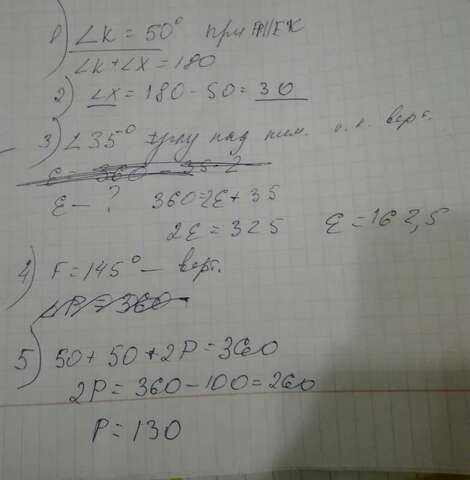 1) ∠K = 50° при FP||EK
∠K + ∠X = 180
2) ∠X = 180 - 50 = 30
3) ∠35° углу над ним. т.к. верт.
E = 360 - 35 · 2
E - ? 360 = 2E + 35
2E = 325 E = 162,5
4) F = 145° - верт.
∠P = 360
5) 50 + 50 + 2P = 360
2P = 360 - 100 = 260
P = 130